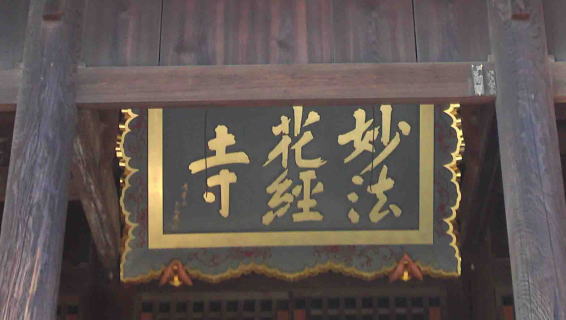 妙法
花經
寺